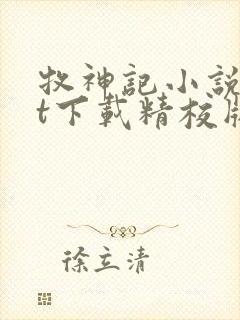 牧神記小說
t下載精校版
徐立清